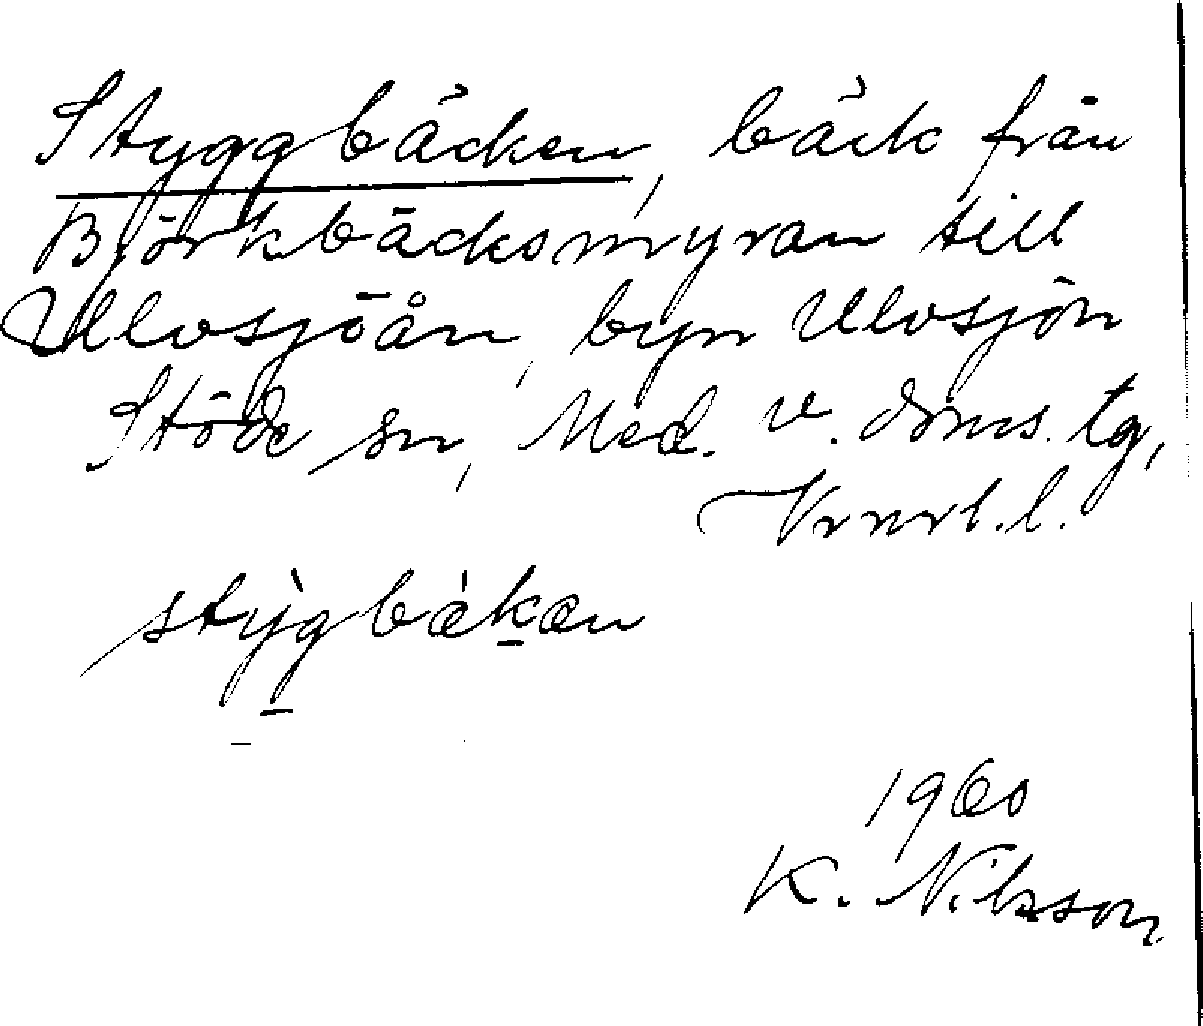 Styggbäcken, bäck från
Björkbäcksmyran till
Ulvsjöån, byn Ulvsjön
Stöde sn, Med. v. doms. tg,
Vrnrl. l.
stỳgbäkæn
1960
K. Nilsson